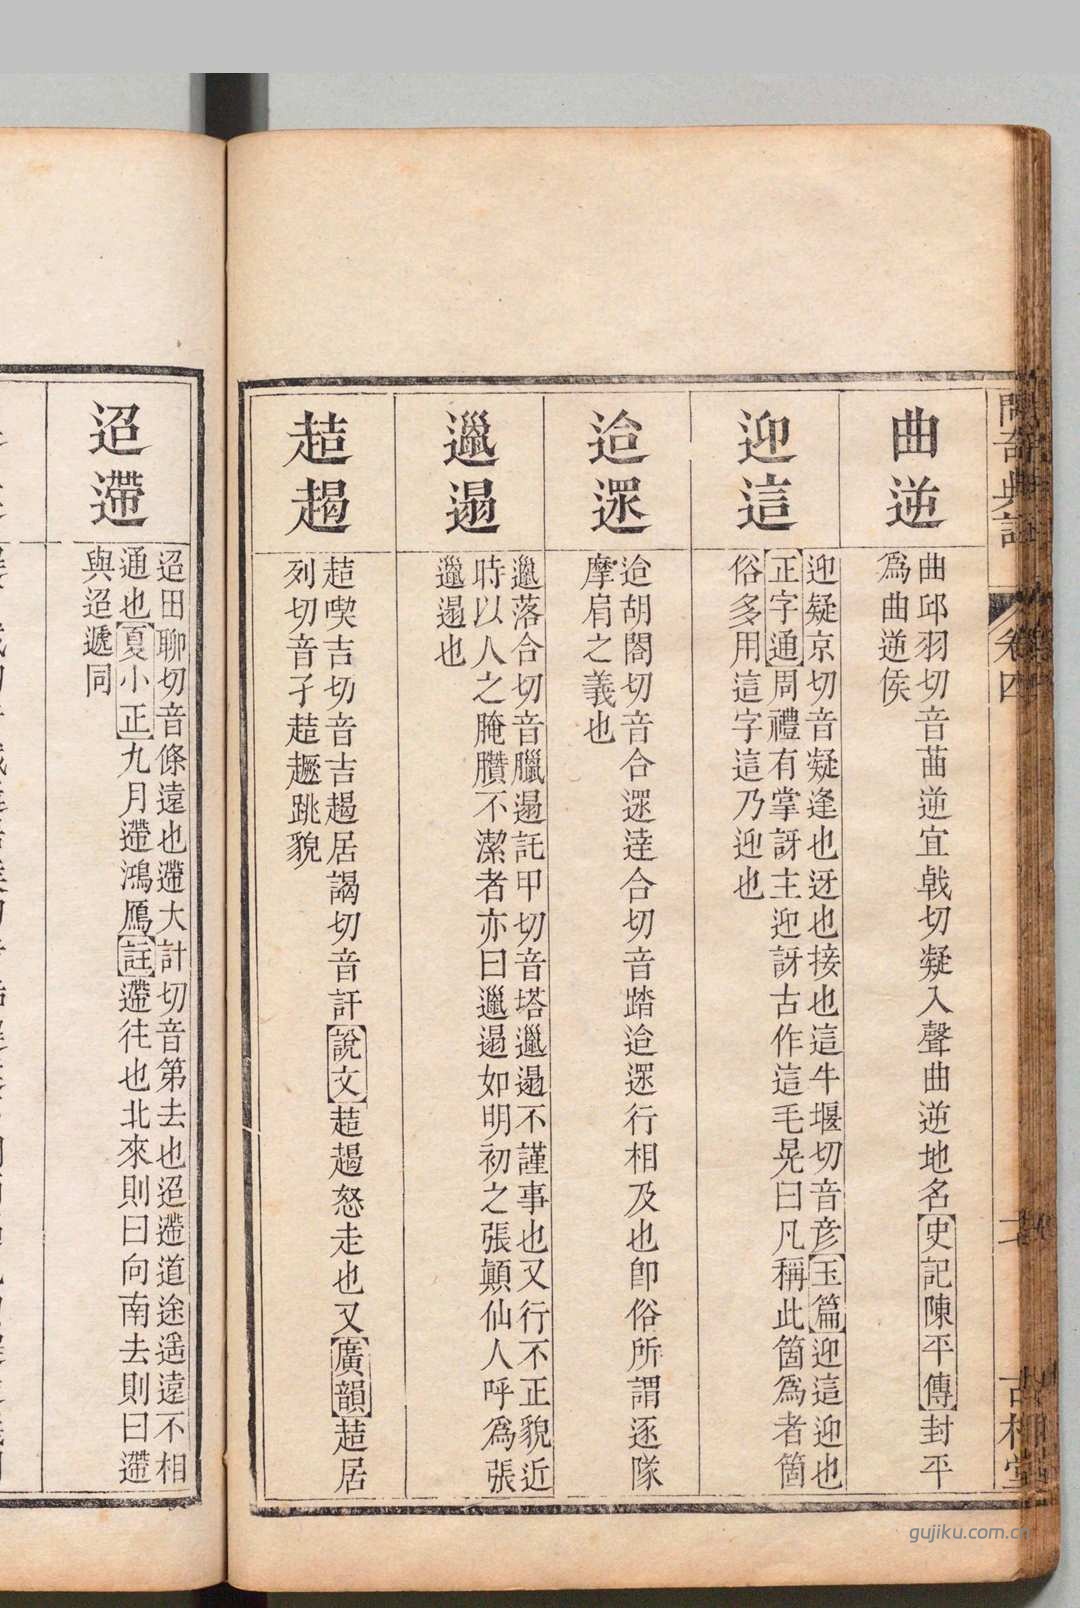 卷四
曲逆
曲邱羽切音苗逆宜戟切凝入聲曲逆地名史記陳平傳封平
爲曲逆侯
迎這
迎疑京切音凝逢也迓也接也這牛堰切音彦玉篇迎這迎也
正字通周禮有掌訝主迎訝古作這毛晃曰凡稱此箇爲者箇
俗多用這字這乃迎也
迨遝
迨胡閤切音合遝達合切音踏迨遝行相及也卽俗所謂逐隊
摩肩之義也
邋遢
邋落合切音臘遢託甲切音塔邋遢不謹事也又行不正貌近
時以人之腌臢不潔者亦曰邋遢如明初之張顛仙人呼爲張
邋遢也
趌趨
趌喫吉切音吉趨居謁切音訐說文趌趨怒走也又廣韻趌居
列切音孑趌趰跳貌
迢遰
迢田聊切音條遠也遰大計切音第去也迢遰道途遥遠不相
通也夏小正九月遰鴻鴈註遰徃也北來則曰向南去則曰遰
與迢遞同
gujiku.com.cn